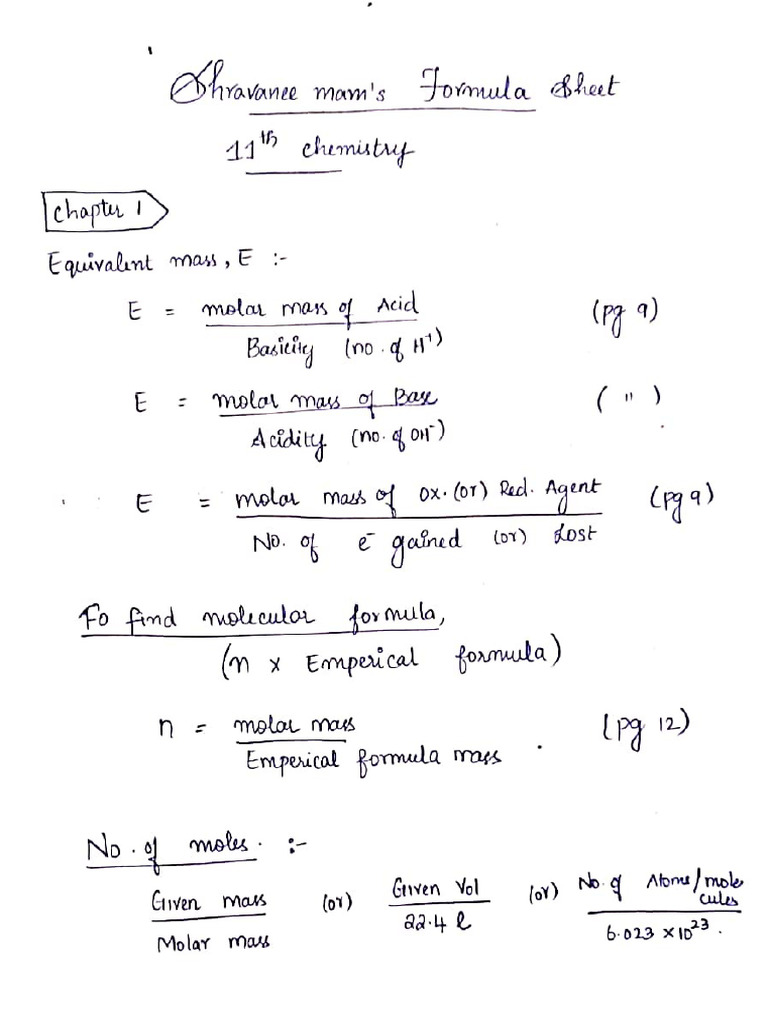 Shravanee mam's Formula Sheet
11th chemistry
Chapter 1
Equivalent mass, E :-
E = molar mass of Acid / Basicity (no. of H⁺) (pg 9)
E = molar mass of Base / Acidity (no. of OH⁻) ( " )
E = molar mass of ox. (or) Red. Agent / No. of e⁻ gained (or) Lost (pg 9)
To find molecular formula,
(n x Emperical formula)
n = molar mass / Emperical formula mass . (pg 12)
No. of moles. :-
Given mass / Molar mass (or) Given Vol / 22.4 l (or) No. of Atoms/molecules / 6.023 x 10²³.